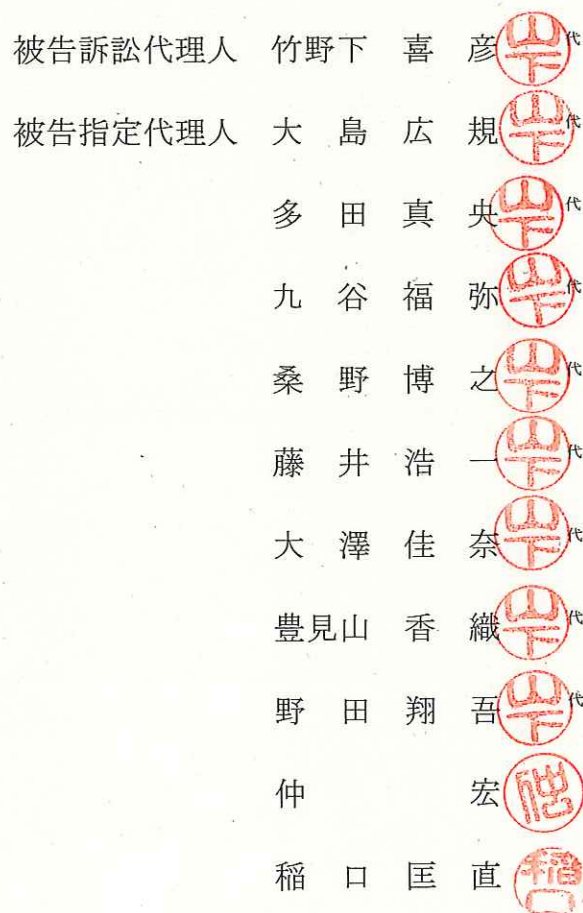 被告訴訟代理人 竹野下 喜 彦 山下 代
被告指定代理人 大 島 広 規 山下 代
多 田 真 央 山下 代
九 谷 福 弥 山下 代
桑 野 博 之 山下 代
藤 井 浩 一 山下 代
大 澤 佳 奈 山下 代
豊見山 香 織 山下 代
野 田 翔 吾 山下 代
仲 宏
稲 口 匡 直 稲口